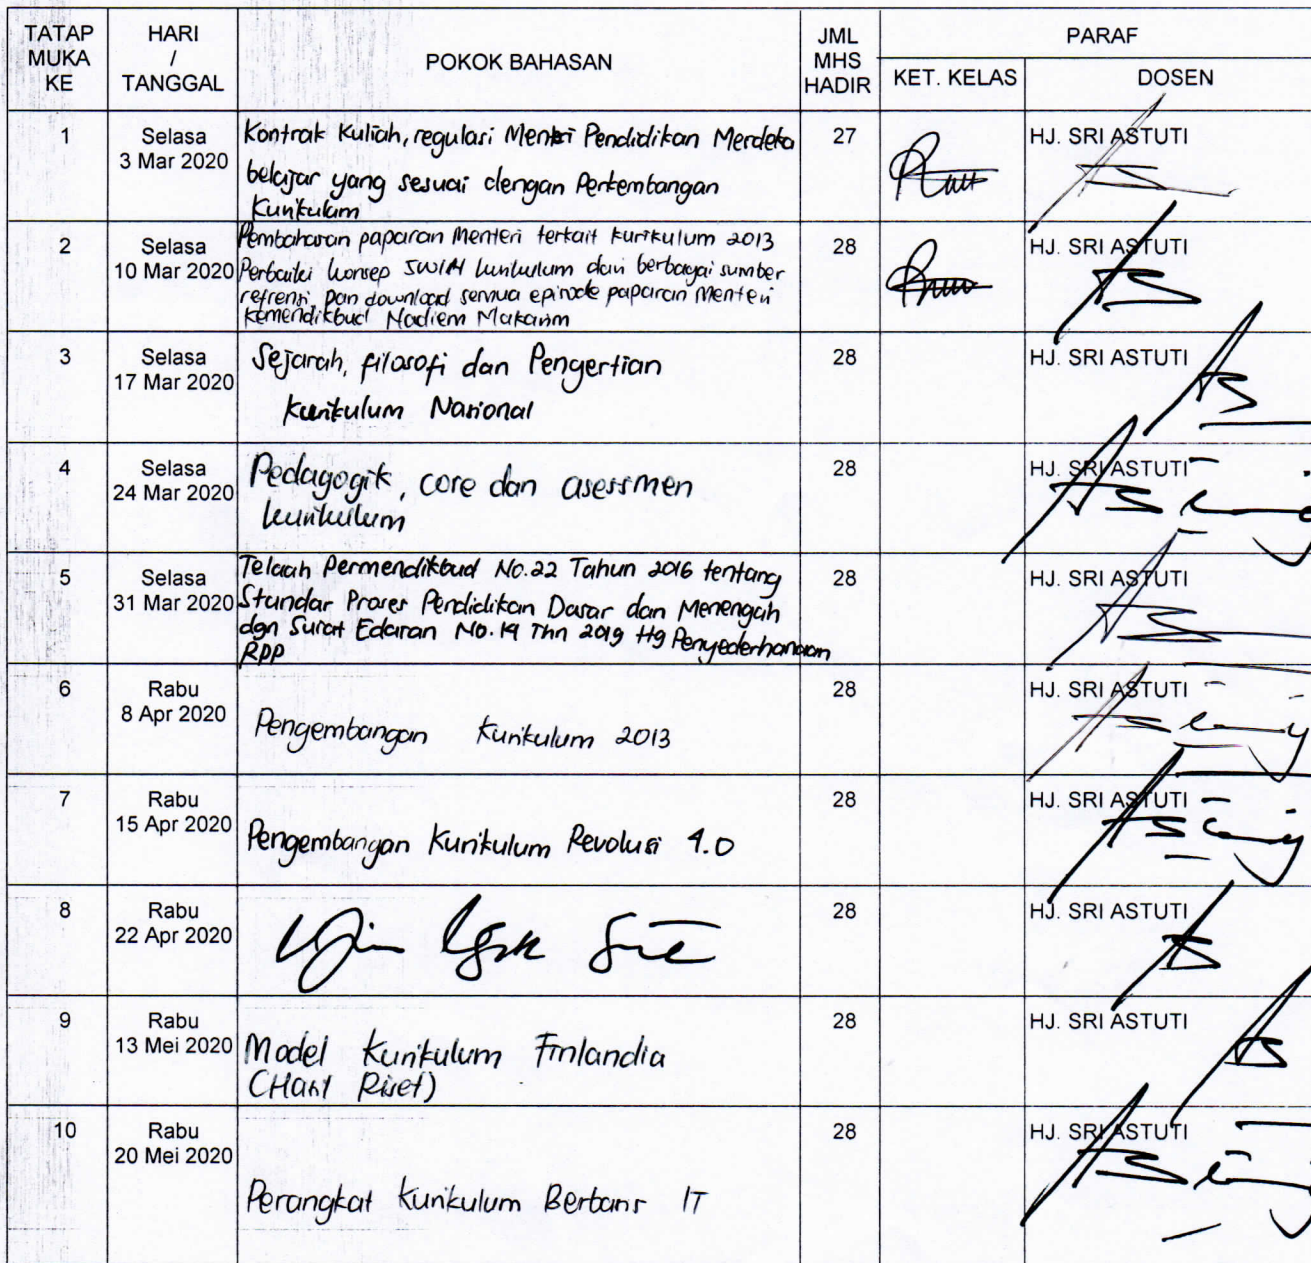 TATAP MUKA KE
HARI / TANGGAL
POKOK BAHASAN
JML MHS HADIR
PARAF
KET. KELAS
DOSEN
1
Selasa
3 Mar 2020
Kontrak Kuliah, regulasi Mentri Pendidikan Merdeka
belajar yang sesuai dengan Perkembangan
Kurikulum
27
HJ. SRI ASTUTI
2
Selasa
10 Mar 2020
Pembahasan paparan Menteri terkait kurikulum 2013
Perbaiki konsep 5W1H kurikulum dari berbagai sumber
refrensi Dan download semua episode paparan Menteri
Kemendikbud Nadiem Makarim
28
HJ. SRI ASTUTI
3
Selasa
17 Mar 2020
Sejarah, filosofi dan Pengertian
Kurikulum Nasional
28
HJ. SRI ASTUTI
4
Selasa
24 Mar 2020
Pedagogik, core dan asessmen
kurikulum
28
HJ. SRI ASTUTI
5
Selasa
31 Mar 2020
Telaah Permendikbud No.22 Tahun 2016 tentang
Standar Proses Pendidikan Dasar dan Menengah
dgn Surat Edaran No. 14 Thn 2019 ttg Penyederhanaan
RPP
28
HJ. SRI ASTUTI
6
Rabu
8 Apr 2020
Pengembangan Kurikulum 2013
28
HJ. SRI ASTUTI
7
Rabu
15 Apr 2020
Pengembangan Kurikulum Revolusi 4.0
28
HJ. SRI ASTUTI
8
Rabu
22 Apr 2020
28
HJ. SRI ASTUTI
9
Rabu
13 Mei 2020
Model Kurikulum Finlandia
(Hasil Riset)
28
HJ. SRI ASTUTI
10
Rabu
20 Mei 2020
Perangkat Kurikulum Berbasis IT
28
HJ. SRI ASTUTI